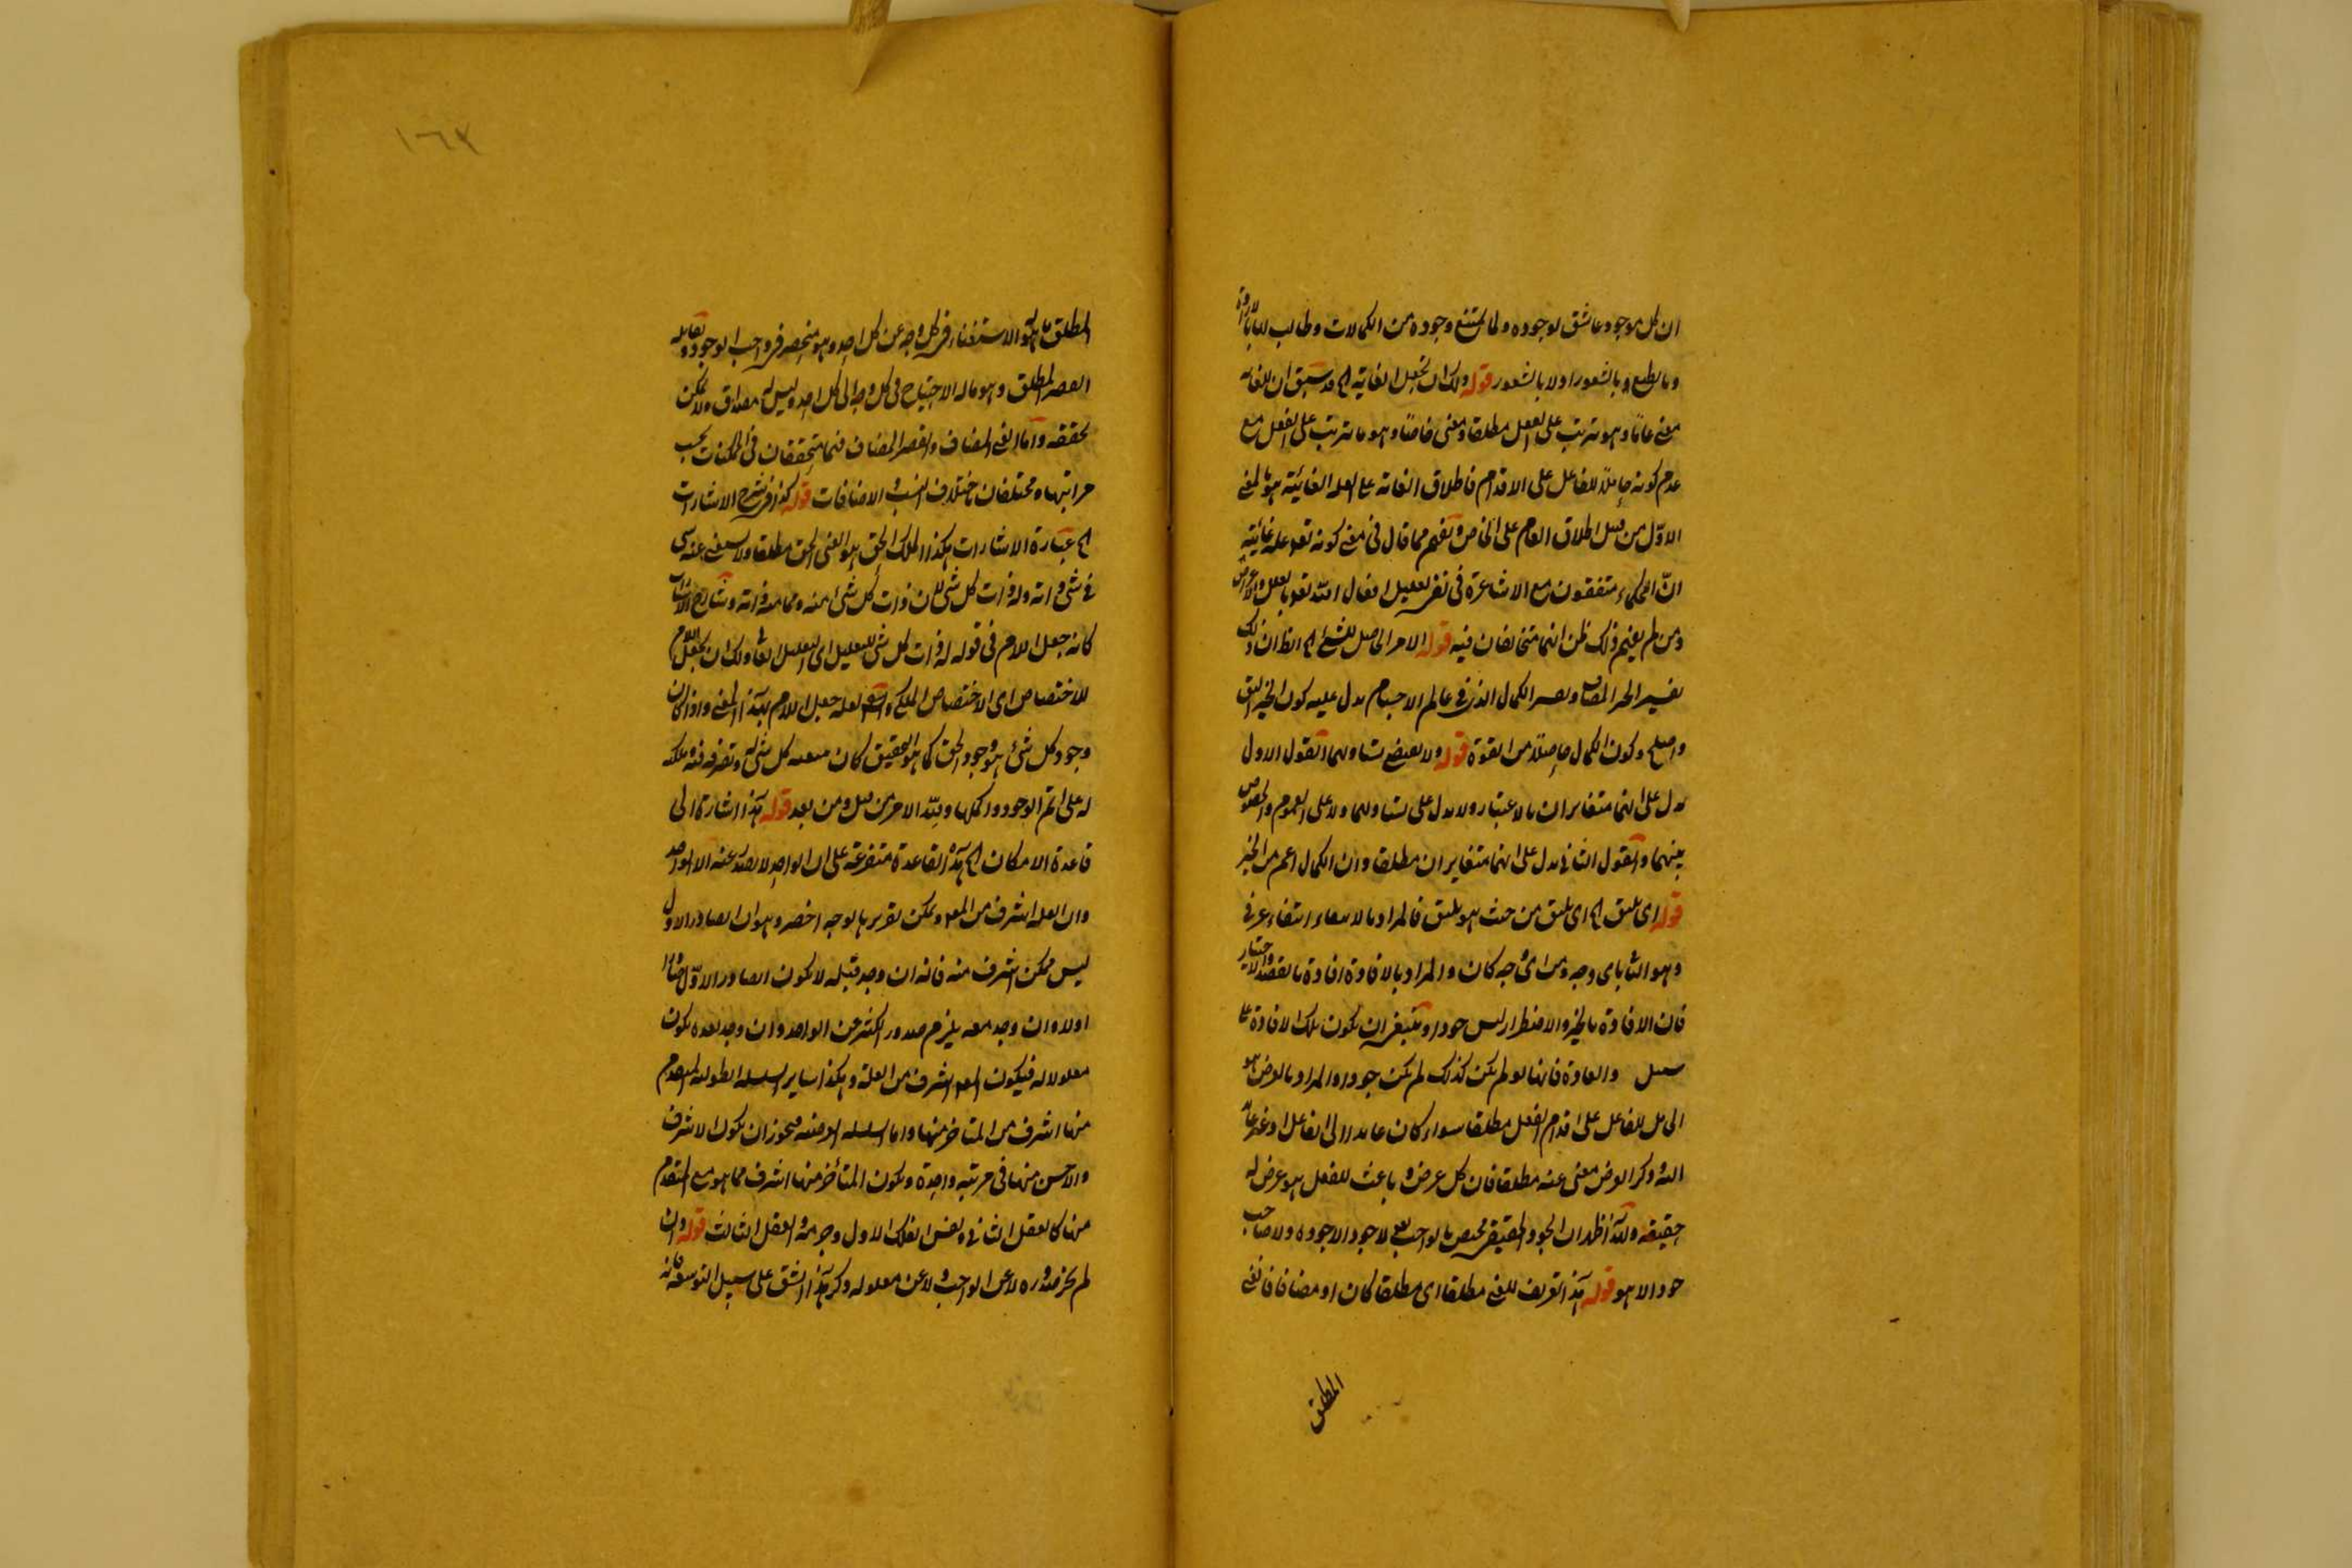 ان كل موجود عاشق لوجوده ولما يمتنع وجوده من الكمالات وطالب لها بالارادة
وبالطبع وبالشعور اولا بالشعور قوله ولك ان تجعل الغاية الخ قد سبق ان للغاية
معنى عاما وهو ما يترتب على الفعل مطلقا ومعنى خاصا وهو ما يترتب على الفعل مع
عدم كونه حاملا للفاعل على الاقدام فاطلاق الغاية على العلة الغائية هو بالمعنى
الاول من قبيل اطلاق العام على الخاص ويفهم مما قال في معنى كونه تعالى علة غائية
ان الحكماء متفقون مع الاشاعرة في نفي تعليل افعال الله تعالى بالعلل والاغراض
ومن لم يفهم ذلك ظن انهما متخالفان فيه قوله الامر الحاصل للشئ الخ الظ ان ذلك
تفسير الخير المضاف وتفسير الكمال الذي في عالم الاجسام يدل عليه كون الخير اليق
واصلح وكون الكمال حاصلا من القوة قوله ولا بعض تساويهما القول الاول
يدل على انهما متغايران بالاعتبار ولا يدل على تساويهما ولا على العموم والخصوص
بينهما والقول الثاني يدل على انهما متغايران مطلقا وان الكمال اعم من الخير
قوله اى يليق الخ اى يليق من حيث هو يليق فالمراد بالابتغاء ابتغاء عرفي
وهو باى وجه ومن اى وجه كان والمراد بالافادة افادة بالقصد والاختيار
فان الافادة بالجبر والاضطرار ليس جودا وينبغى ان يكون تلك الافادة على
سبيل والعادة فانها لو لم يكن كذلك لم يكن جودا والمراد بالعوض هو
الحامل للفاعل على اقدام الفعل مطلقا سواء كان عايدا الى الفاعل او غير عايد
اليه وذكر العوض مغنى عنه مطلقا فان كل غرض وباعث للفعل هو عوض له
حقيقة ولهذا ظهر ان الجود الحقيقي مختص بالواجب تعالى لا جود الا جوده ولا صاحب
جود الا هو قوله هذا تعريف للغنى مطلقا اى مطلقا كان او مضافا فالغنى
المطلق
المطلق ما له الاستغناء في كل وجه عن كل احد وهو منحصر في واجب الوجود ويقابله
الفقير المطلق وهو ما له الاحتياج في كل وجه الى كل احد وليس له مصداق ولا يمكن
تحققه واما الغنى المضاف والفقير المضاف فهما متحققان في الممكنات بحسب
مراتبها ومختلفان باختلاف النسب والاضافات قوله كذا في شرح الاشارات
الخ عبارة الاشارات هكذا الملك الحق هو الغنى الحق مطلقا ولا يستغنى عنه شئ
في شئ وله ذات كل شئ لان ذات كل شئ منه ومما منه ذاته وشارح الاشارات
كانه جعل اللام في قوله له ذات كل شئ للتعليل اى التعليل الغائى ولك ان تجعل اللام
للاختصاص اى الاختصاص الملكى والشيخ لعله جعل اللام بهذا المعنى واذا كان
وجود كل شئ هو وجود الحق كما هو التحقيق كان كل شئ له وتصرفه فيه وملكه
له على اتم الوجود واكملها ولله الامر من قبل ومن بعد قوله هذا اشارة الى
قاعدة الامكان الخ هذه القاعدة متفرعة على ان الواحد لا يصدر عنه الا الواحد
وان العلة اشرف من المعلول ويمكن تقريرها بوجه اخصر وهو ان الصادر الاول
ليس ممكن اشرف منه فانه ان وجد قبله لا يكون الصادر الاول صادرا
اولا وان وجد معه يلزم صدور الكثير عن الواحد وان وجد بعده يكون
معلولا له فيكون المعلول اشرف من العلة وهكذا ساير السلسلة الطولية المتقدم
منها اشرف من المتاخر منها واما السلسلة العرضية فيجوز ان يكون الاشرف
والاخس منها في مرتبة واحدة ويكون المتأخر منها اشرف مما هو مع المتقدم
منها كالعقل الثاني ونفس الفلك الاول وجرمه والعقل الثالث قوله وان
لم يجز صدوره لا عن الواجب ولا عن معلوله وذكر هذا الشق على سبيل التوسعة فانه
١٦٧